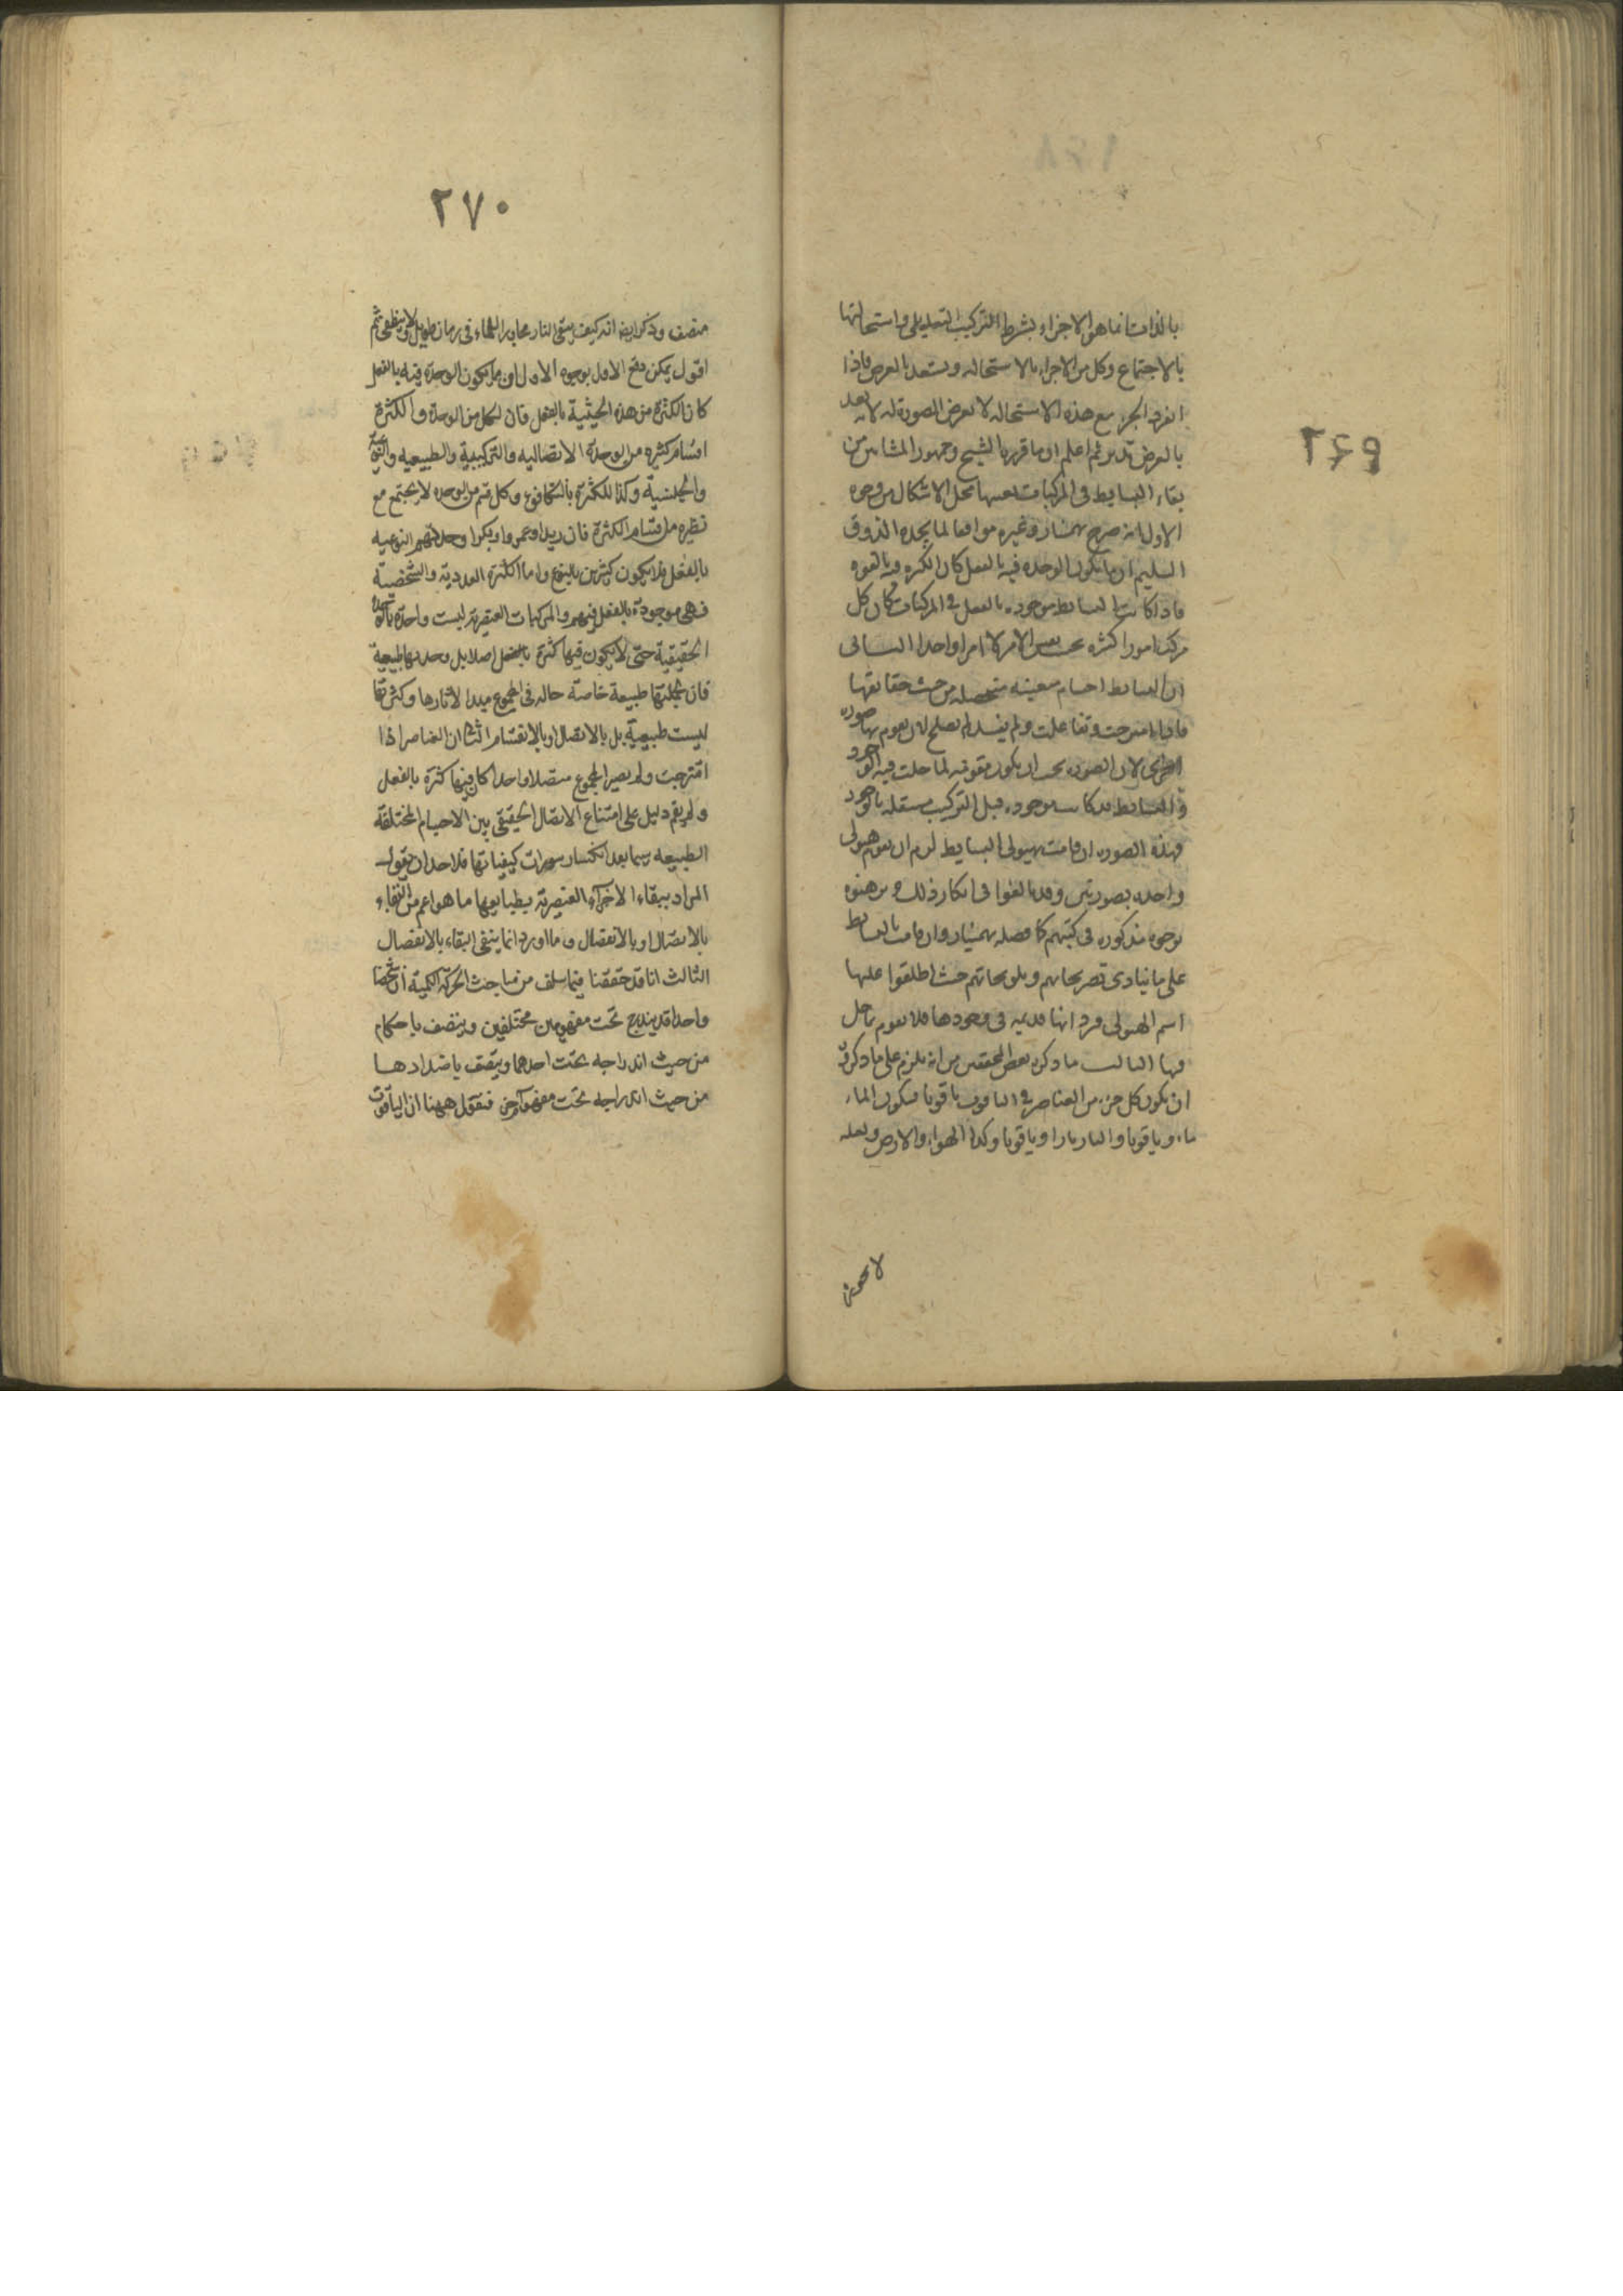 ٢٦٩
بالذات انما هو الاجزاء بشرط التركيب التعديلي واستحالتها
بالاجتماع وكل من الاجزاء بالاستحاله ويستعد بالعرض فاذا
انفرد الجزء مع هذه الاستحاله لا تعرض الصورة له لانه يعد
بالعرض تدبر ثم اعلم ان ما قرره الشيخ وجمهور المشائين من
بقاء البسايط في المركبات بعينها محل الاشكال من وجوه
الاول انه صرح بهمنيار وغيره موافقا لما يجده الذوق
السليم ان ما يكون الوحده فيه بالفعل كان الكثره فيه بالقوه
فاذا كانت البسائط موجوده بالفعل في المركبات كان كل
مركب امورا كثره بحسب نفس الامر لا امرا واحدا الثاني
ان البسائط اجسام معينه متحصله من حيث حقائقها
فاذا امتزجت وتفاعلت ولم يفسد لم تصلح لان تقوم بها صوره
اخرى لان الصوره يجب ان يكون مقومه لما حلت فيه
والبسائط قد كانت موجوده قبل التركيب مستقله بالوجود
فهذه الصوره ان قامت بهيولى البسايط لزم ان تقوم هيولى
واحده بصورتين وقد بالغوا في انكار ذلك وبرهنوه
بوجوه مذكوره في كتبهم كما فصله بهمنيار وان قامت بالبسائط
على ما ينادي تصريحاتهم وتلويحاتهم حيث اطلقوا عليها
اسم الهيولى فرد انها قديمه في وجودها فلا تقوم بما حل
فيها الثالث ما ذكره بعض المحققين من انه يلزم على ما ذكروه
ان يكون كل جزء من العناصر في الياقوت ياقوتا فيكون الماء
ماء وياقوتا والنار نارا وياقوتا وكذا الهواء والارض ولعله
٢٧٠
منصف وذكر ايضا انه كيف يبقى النار مجاورا للماء في زمان طويل لا ينطفي ثم
اقول يمكن دفع الاول بوجوه الاول ان ما يكون الوحدة فيه بالفعل
كان الكثرة من هذه الحيثية بالفعل فان لكل من الوحدة والكثرة
اقسام كثيره من الوحدة الاتصاليه والتركيبية والطبيعيه والنوعية
والجنسية وكذا للكثرة بالتكافوء وكل قسم من الوحده لا يجتمع مع
نظيره من اقسام الكثرة فان زيدا وعمروا وبكرا وحدتهم النوعيه
بالفعل فلا يكون كثيرين بالنوع واما الكثرة العددية والشخصية
فهي موجودة بالفعل فيهم والمركبات العنصرية ليست واحدة بالوحدة
الحقيقية حتى لا يكون فيها كثرة بالفعل اصلا بل وحدتها طبيعية
فان لجملتها طبيعة خاصة حاله في المجموع مبدا لاثارها وكثرتها
ليست طبيعية بل بالاتصال او بالانقسام الثاني ان العناصر اذا
امتزجت ولم يصير المجموع متصلا واحدا كان فيها كثرة بالفعل
ولم يقم دليل على امتناع الاتصال الحقيقي بين الاجسام المختلفة
الطبيعه سيما بعد انكسار سورات كيفياتها فلاحد ان يقول
المراد ببقاء الاجزاء العنصرية بطبايعها ما هو اعم من البقاء
بالاتصال او بالانفصال وما اورد انما ينفي البقاء بالانفصال
الثالث انا قد حققنا فيما سلف من مباحث الحركة الكمية ان شخصا
واحدا قد يندرج تحت مفهومين مختلفين ويتصف باحكام
من حيث اندراجه تحت احدهما ويتصف باضدادها
من حيث اندراجه تحت مفهوم آخر فنقول ههنا ان الياقوت